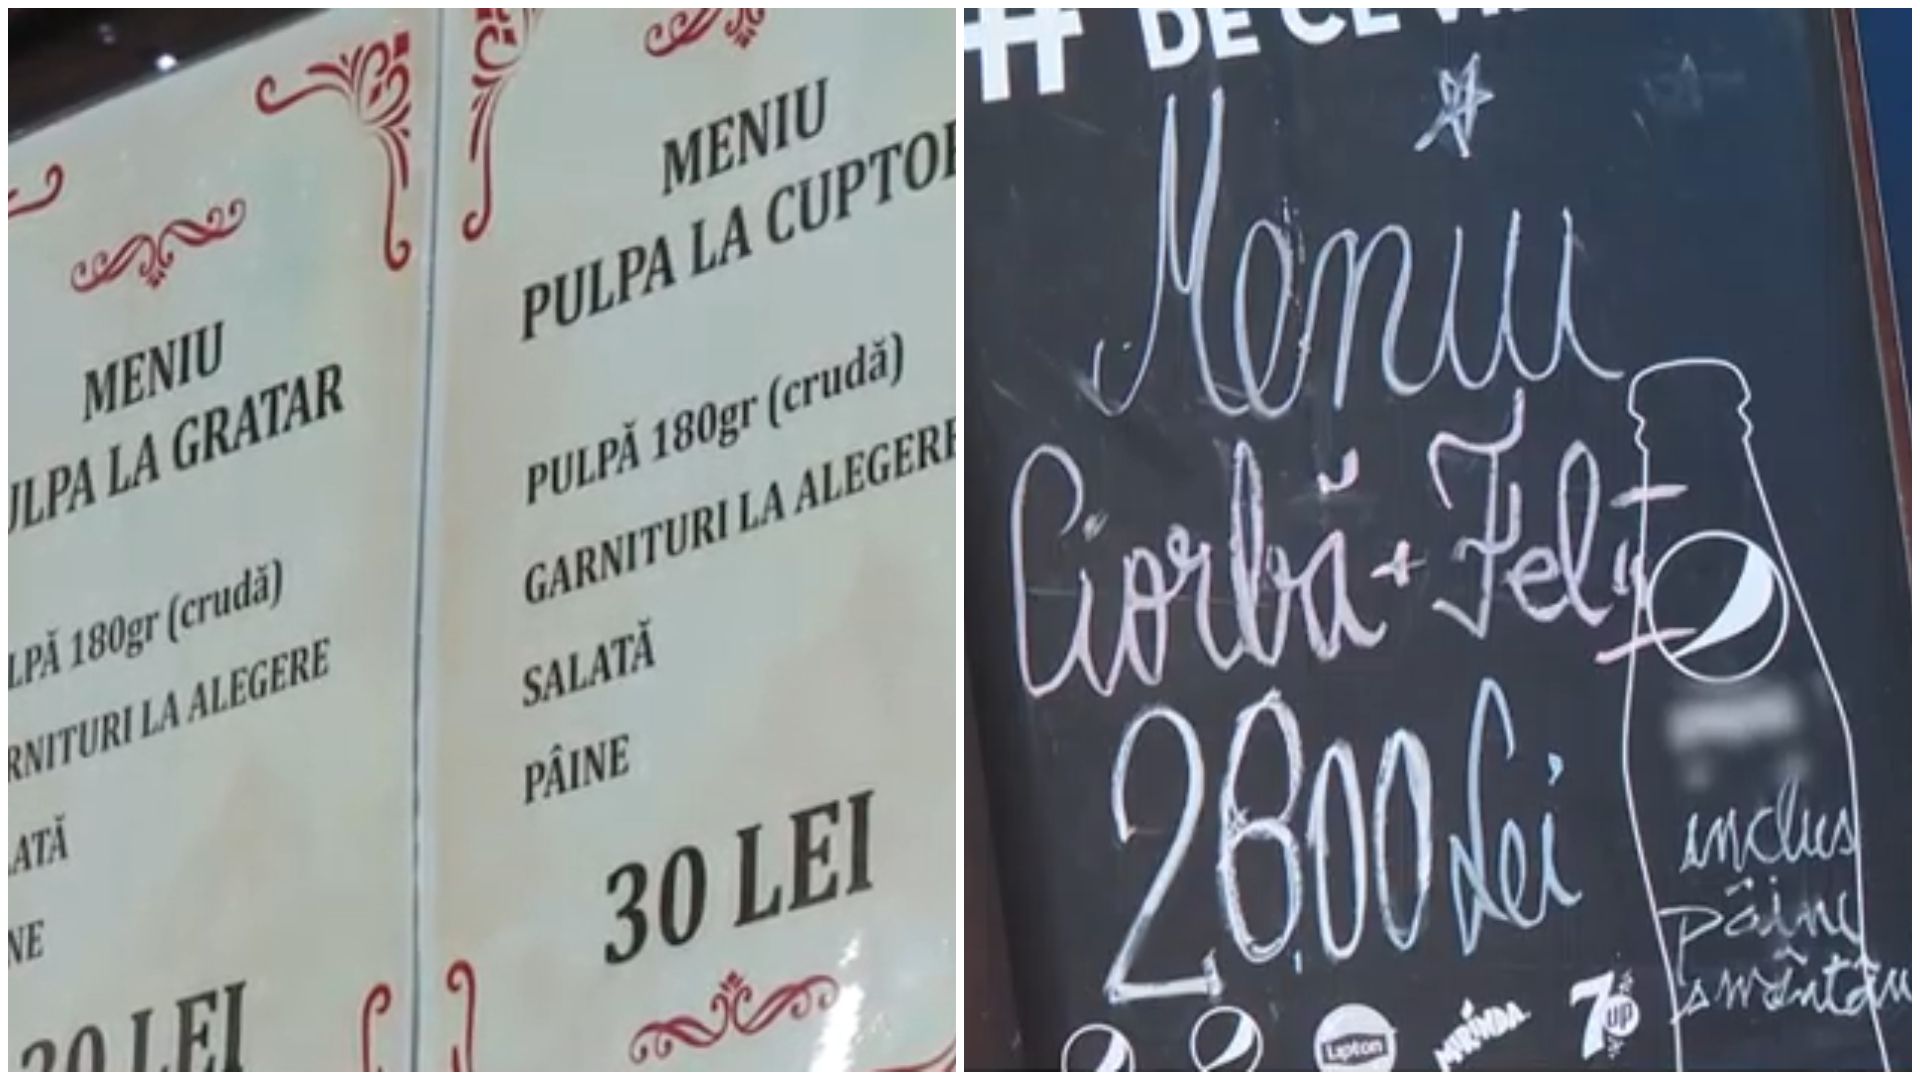 MENIU
PULPA LA GRATAR
LPĂ 180gr (crudă)
RNITURI LA ALEGERE
ATĂ
NE
30 LEI
MENIU
PULPA LA CUPTOR
PULPĂ 180gr (crudă)
GARNITURI LA ALEGERE
SALATĂ
PÂINE
30 LEI
# DE CE
Meniu
Ciorbă + Fel II
28,00 Lei
inclus
pâine
smântân
Lipton
MIRINDA
7up